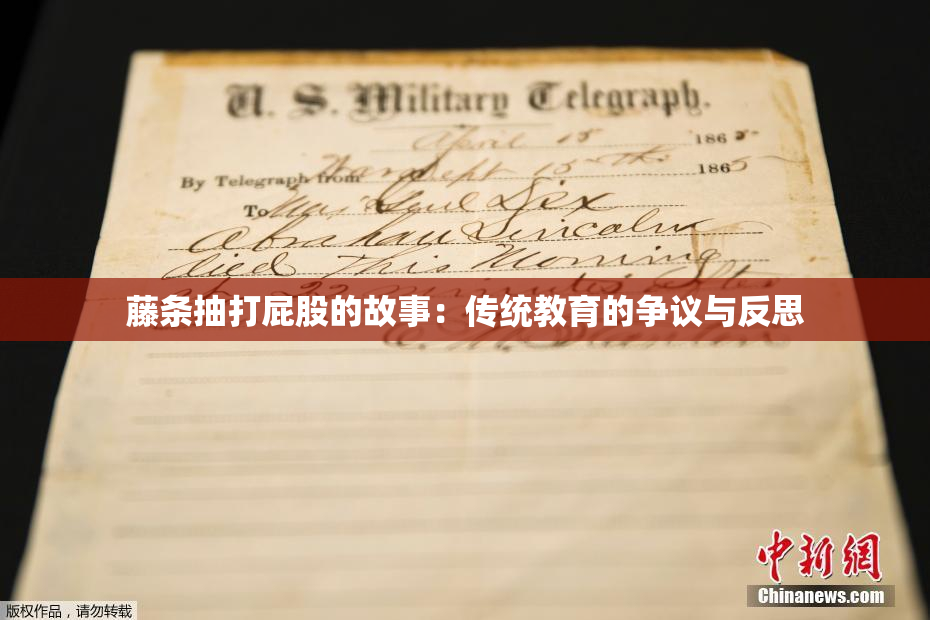 U. S. Military Telegraph.
April 15 1865
By Telegraph from War Dept 15th 1865
To Maj Genl Dix
Abraham Lincoln
died This Morning
at 22 minutes after
藤条抽打屁股的故事：传统教育的争议与反思
中新网
Chinanews.com
版权作品，请勿转载